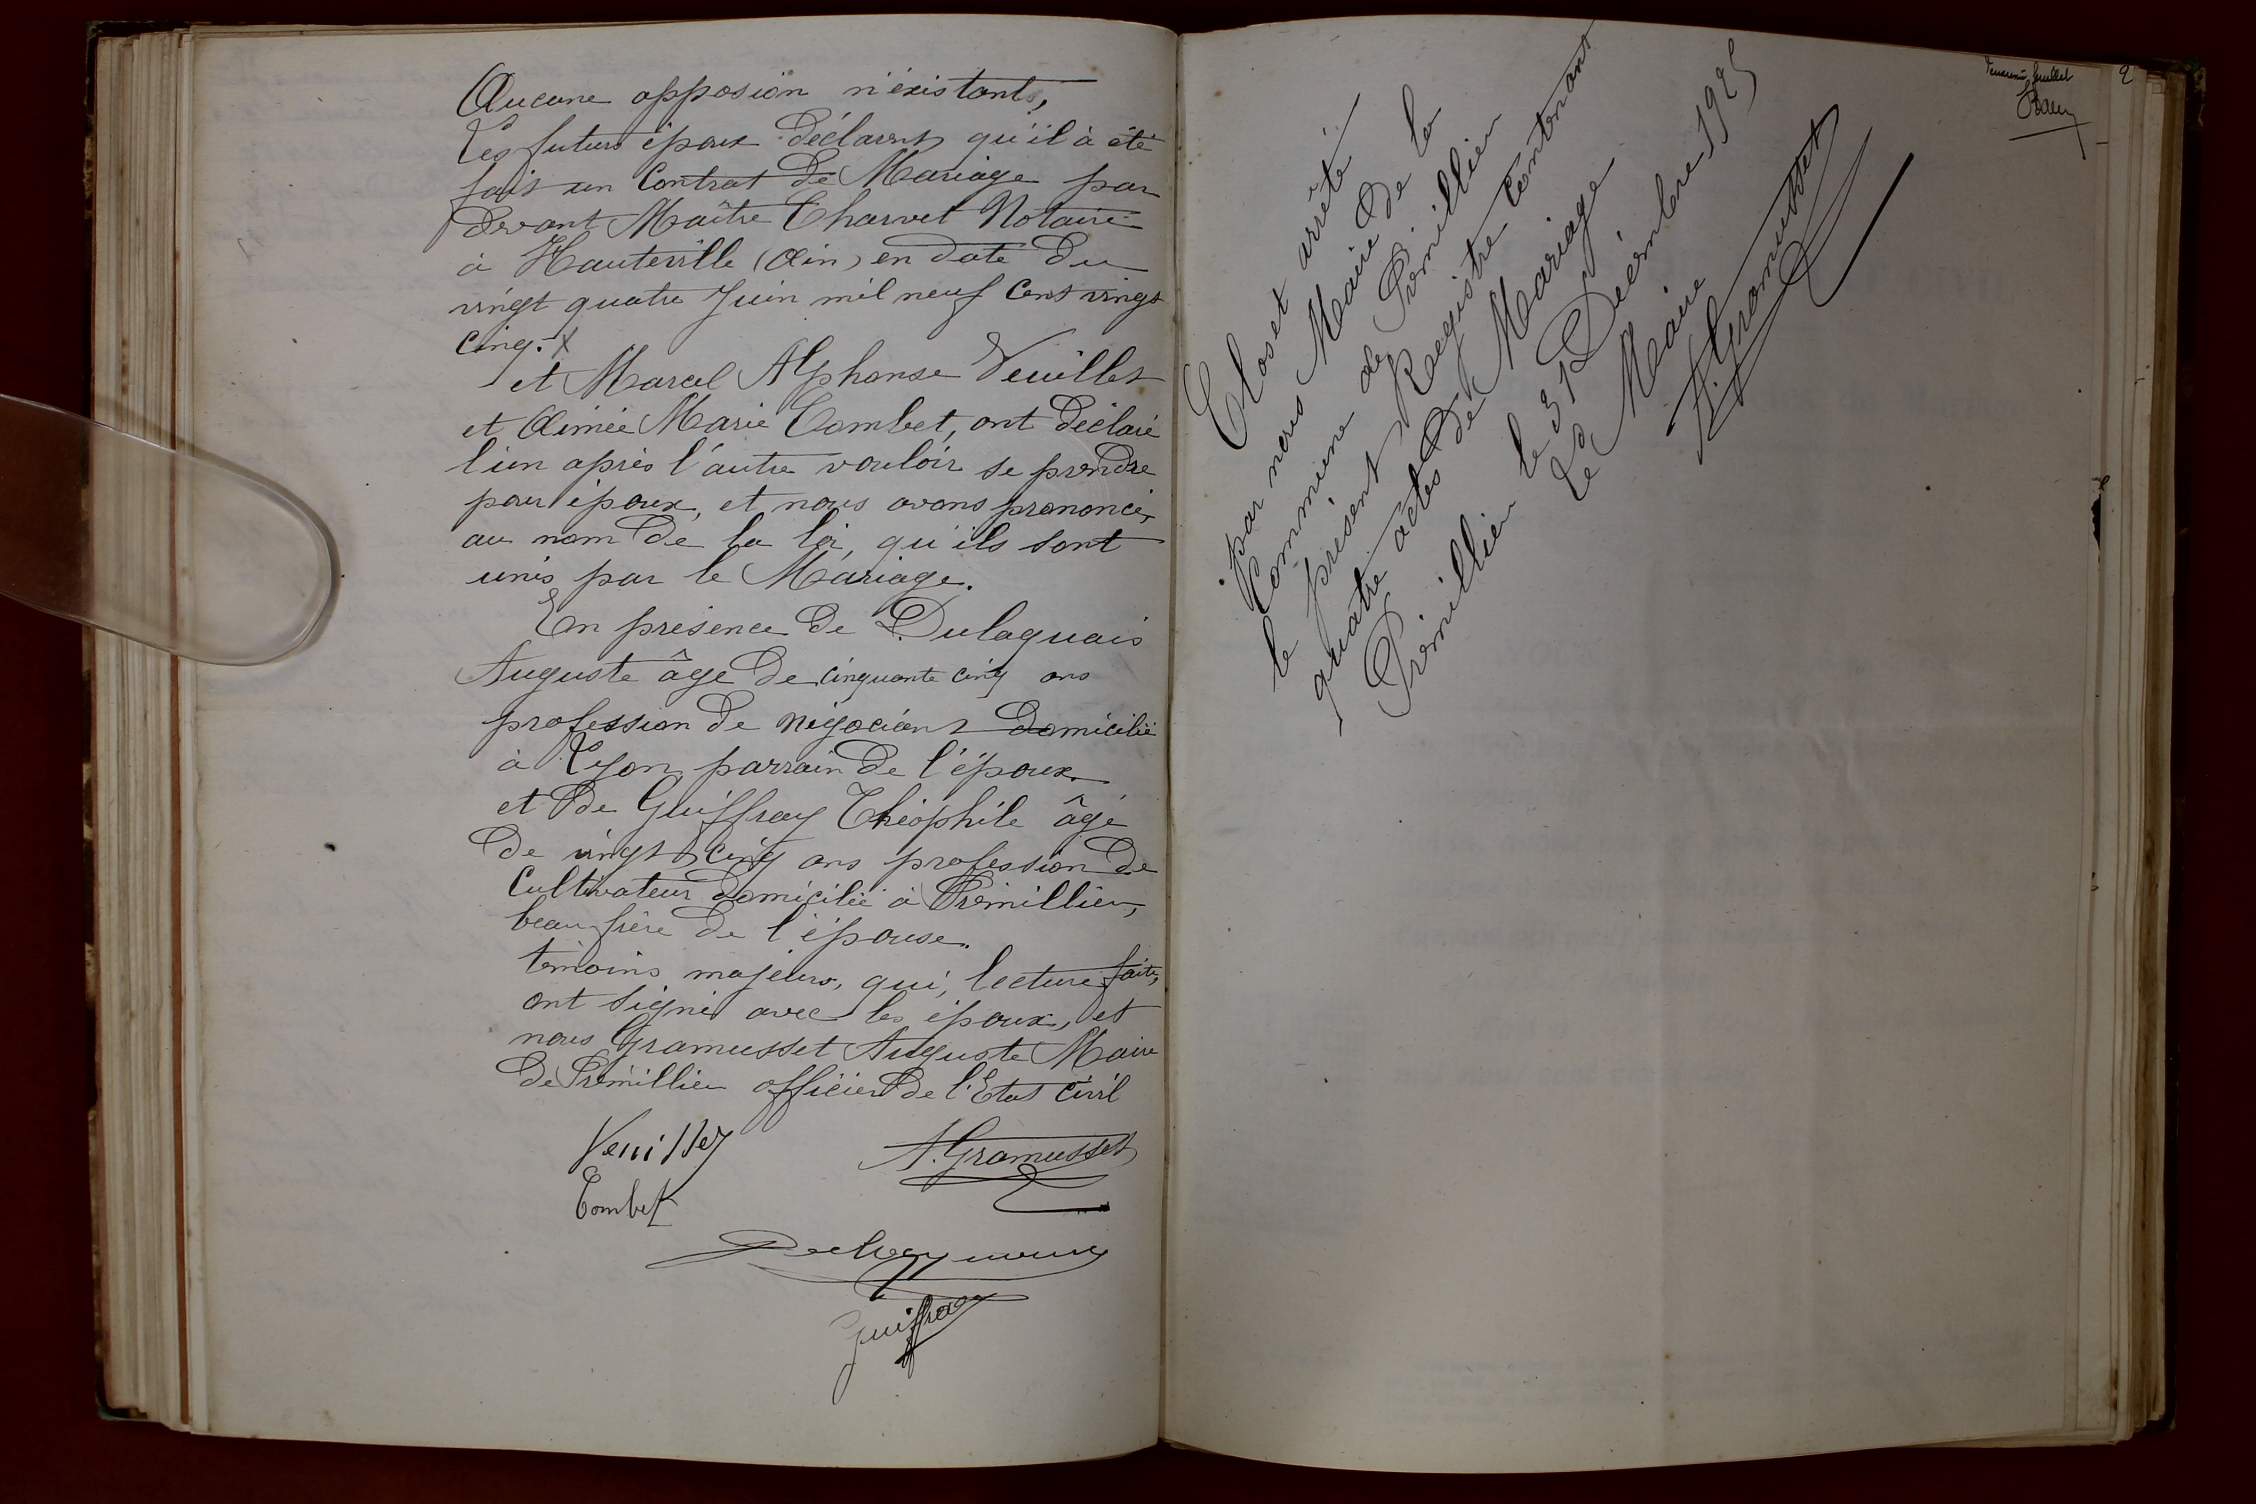 Aucune opposion n'éxistants,
Les futurs époux déclarent qu'il à été
fait un Contrat de Mariage par
devant Maître Charvet Notaire
à Hauteville (Ain) en date du
vingt quatre Juin mil neuf cent vingt
cinq. X
et Marcel Alphonse Veuillet
et Aimée Marie Combet, ont déclaré
l'un après l'autre vouloir se prendre
pour époux, et nous avons prononcé,
au nom de la loi, qu'ils sont
unis par le Mariage.
En présence de Dulaquais
Auguste âge de cinquante cinq ans
profession de négociant domicilié
à Lyon parrain de l'époux.
et de Guiffray Théophile âgé
de vingt cinq ans profession de
Cultivateur domicilié à Prémillieu,
beau frère de l'épouse.
témoins majeurs, qui, lecture faite,
ont signé avec les époux, et
nous Gramusset Auguste Maire
de Prémillieu officier de l'Etat civil
Veuillet
A. Gramusset
Combet
Guiffray
Clos et arrêté
par nous Maire de la
Commune de Prémillieu
le présent Registre contenant
quatre actes de Mariage
Prémillieu le 31 Décembre 1925
Le Maire
A. Gramusset
feuillet
2